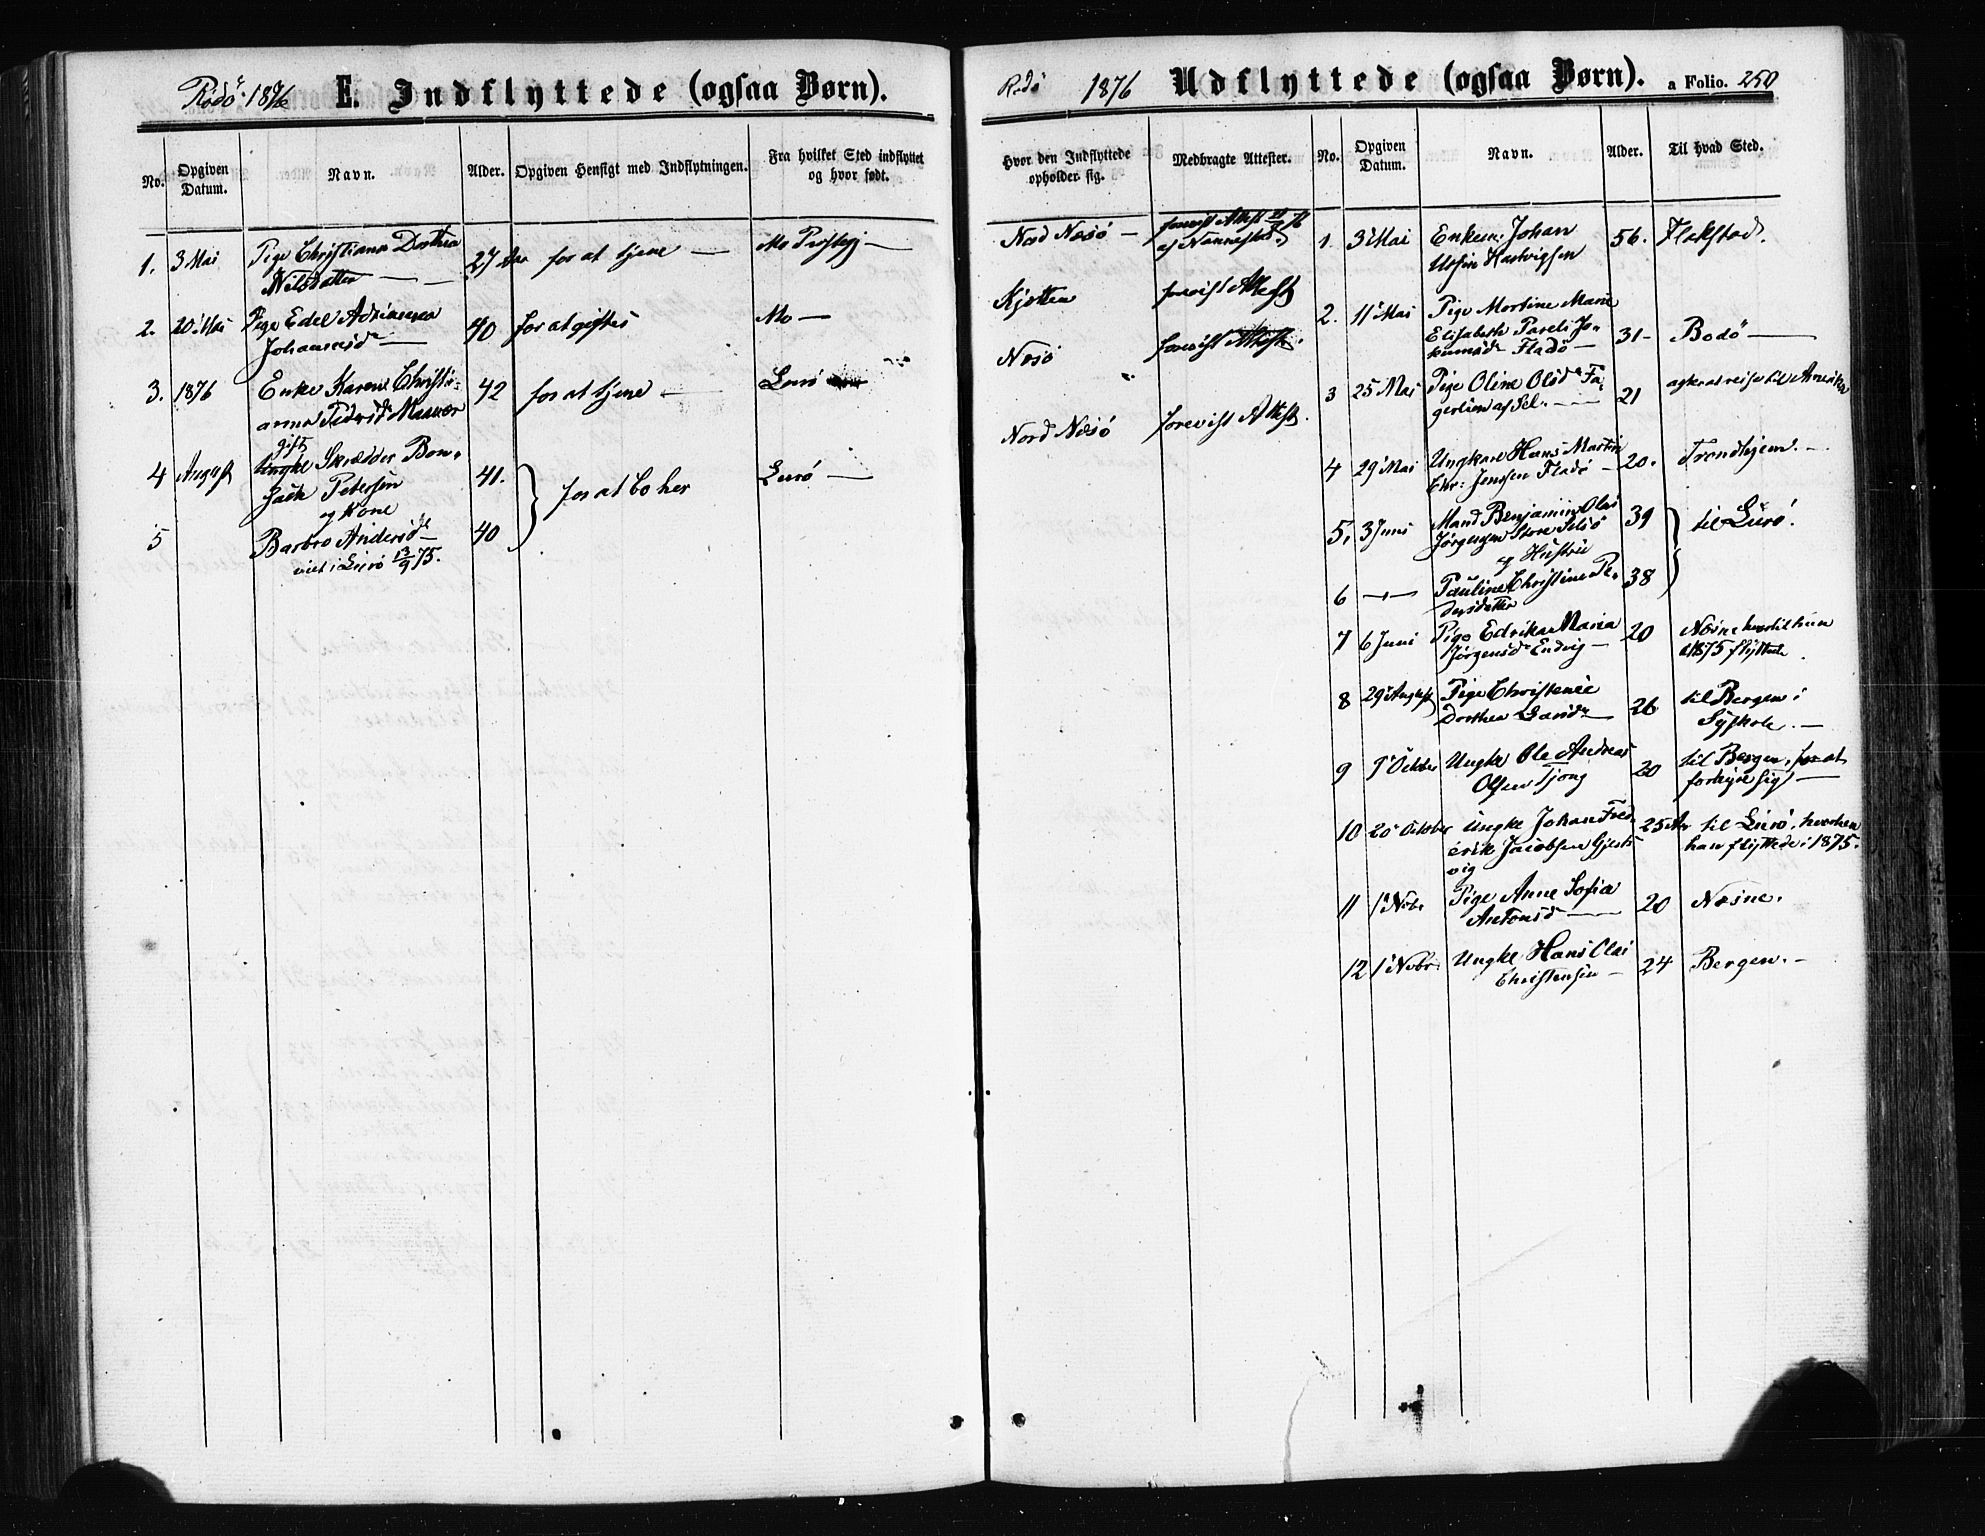 Rödö 1876 E. Indflyttede (ogsaa Børn).
No. Opgiven Datum. Navn. Alder. Opgiven Hensigt med Indflytningen. Fra hvilket Sted indflyttet og hvor født.
1. 3 Mai Pige Christiana Dorthea 27 Aar for at tjene — Mo Præstegj —
Nilsdatter —
2. 20 Mai Pige Edel Adriana 40 for at giftes Mo —
Johannesd —
3. 1876 Enke Karen Christi- 42 for at tjene — Lurö
anna Pedersd
gift
4 August Skrædder Bon- 41. for at bo her Lurö —
sach Petersen
og Kone
5 Barbro Andersd — 40
viet i Lurö 13/9 75.
Rödö 1876 Udflyttede (ogsaa Børn). a Folio. 250
Hvor den Indflyttede opholder sig. Medbragte Attester. No. Opgiven Datum. Navn. Alder. Til hvad Sted.
Nord Næsö — forevist Attest
af
Kjotten forevist Attest
Næsö forevist Attest.
Nord Næsö forevist Attest.
1. 3 Mai Enkem. Johan 56. Flakstad.
Hartvigsen
2. 11 Mai Pige Martine Marie
Elisabeth Pareli Jo- 31- Bodö —
Fladö —
3 25 Mai Pige Oline Olsd Fa- 21 agter at reise til Amerika
gerlien af Sel. —
4 29 Mai Ungkarl Hans Martin 20. Trondhjem. —
Chr: Jenssen Fladö —
5, 3 Juni Mand Benjamin Olai 39 til Lurö.
Jörgensen Store Selsö
og Hustrue
6 — Pauline Christine Pe- 38
dersdatter
7 6 Juni Pige Edrikke Maria 20 Næsne hvortil hun
Jörgensd Endvig — 1875 flyttede.
8 29 August Pige Christense 26 til Bergen i
Dorthea Larsd — Syskole. —
9 Octbr Ungkl Ole Andreas 20 til Bergen, for at
Olsen Tjong forhyre sig —
10 20 October Ungkl Johan Fred- 25 Aar til Lurö, hvorhen
erik Jacobsen Gjers- han flyttede i 1875.
vig
11 1 Novbr Pige Anne Sofia 20 Næsne.
Antonsd —
12 1 Novbr Ungkl Hans Olai 24 Bergen. —
Christensen —